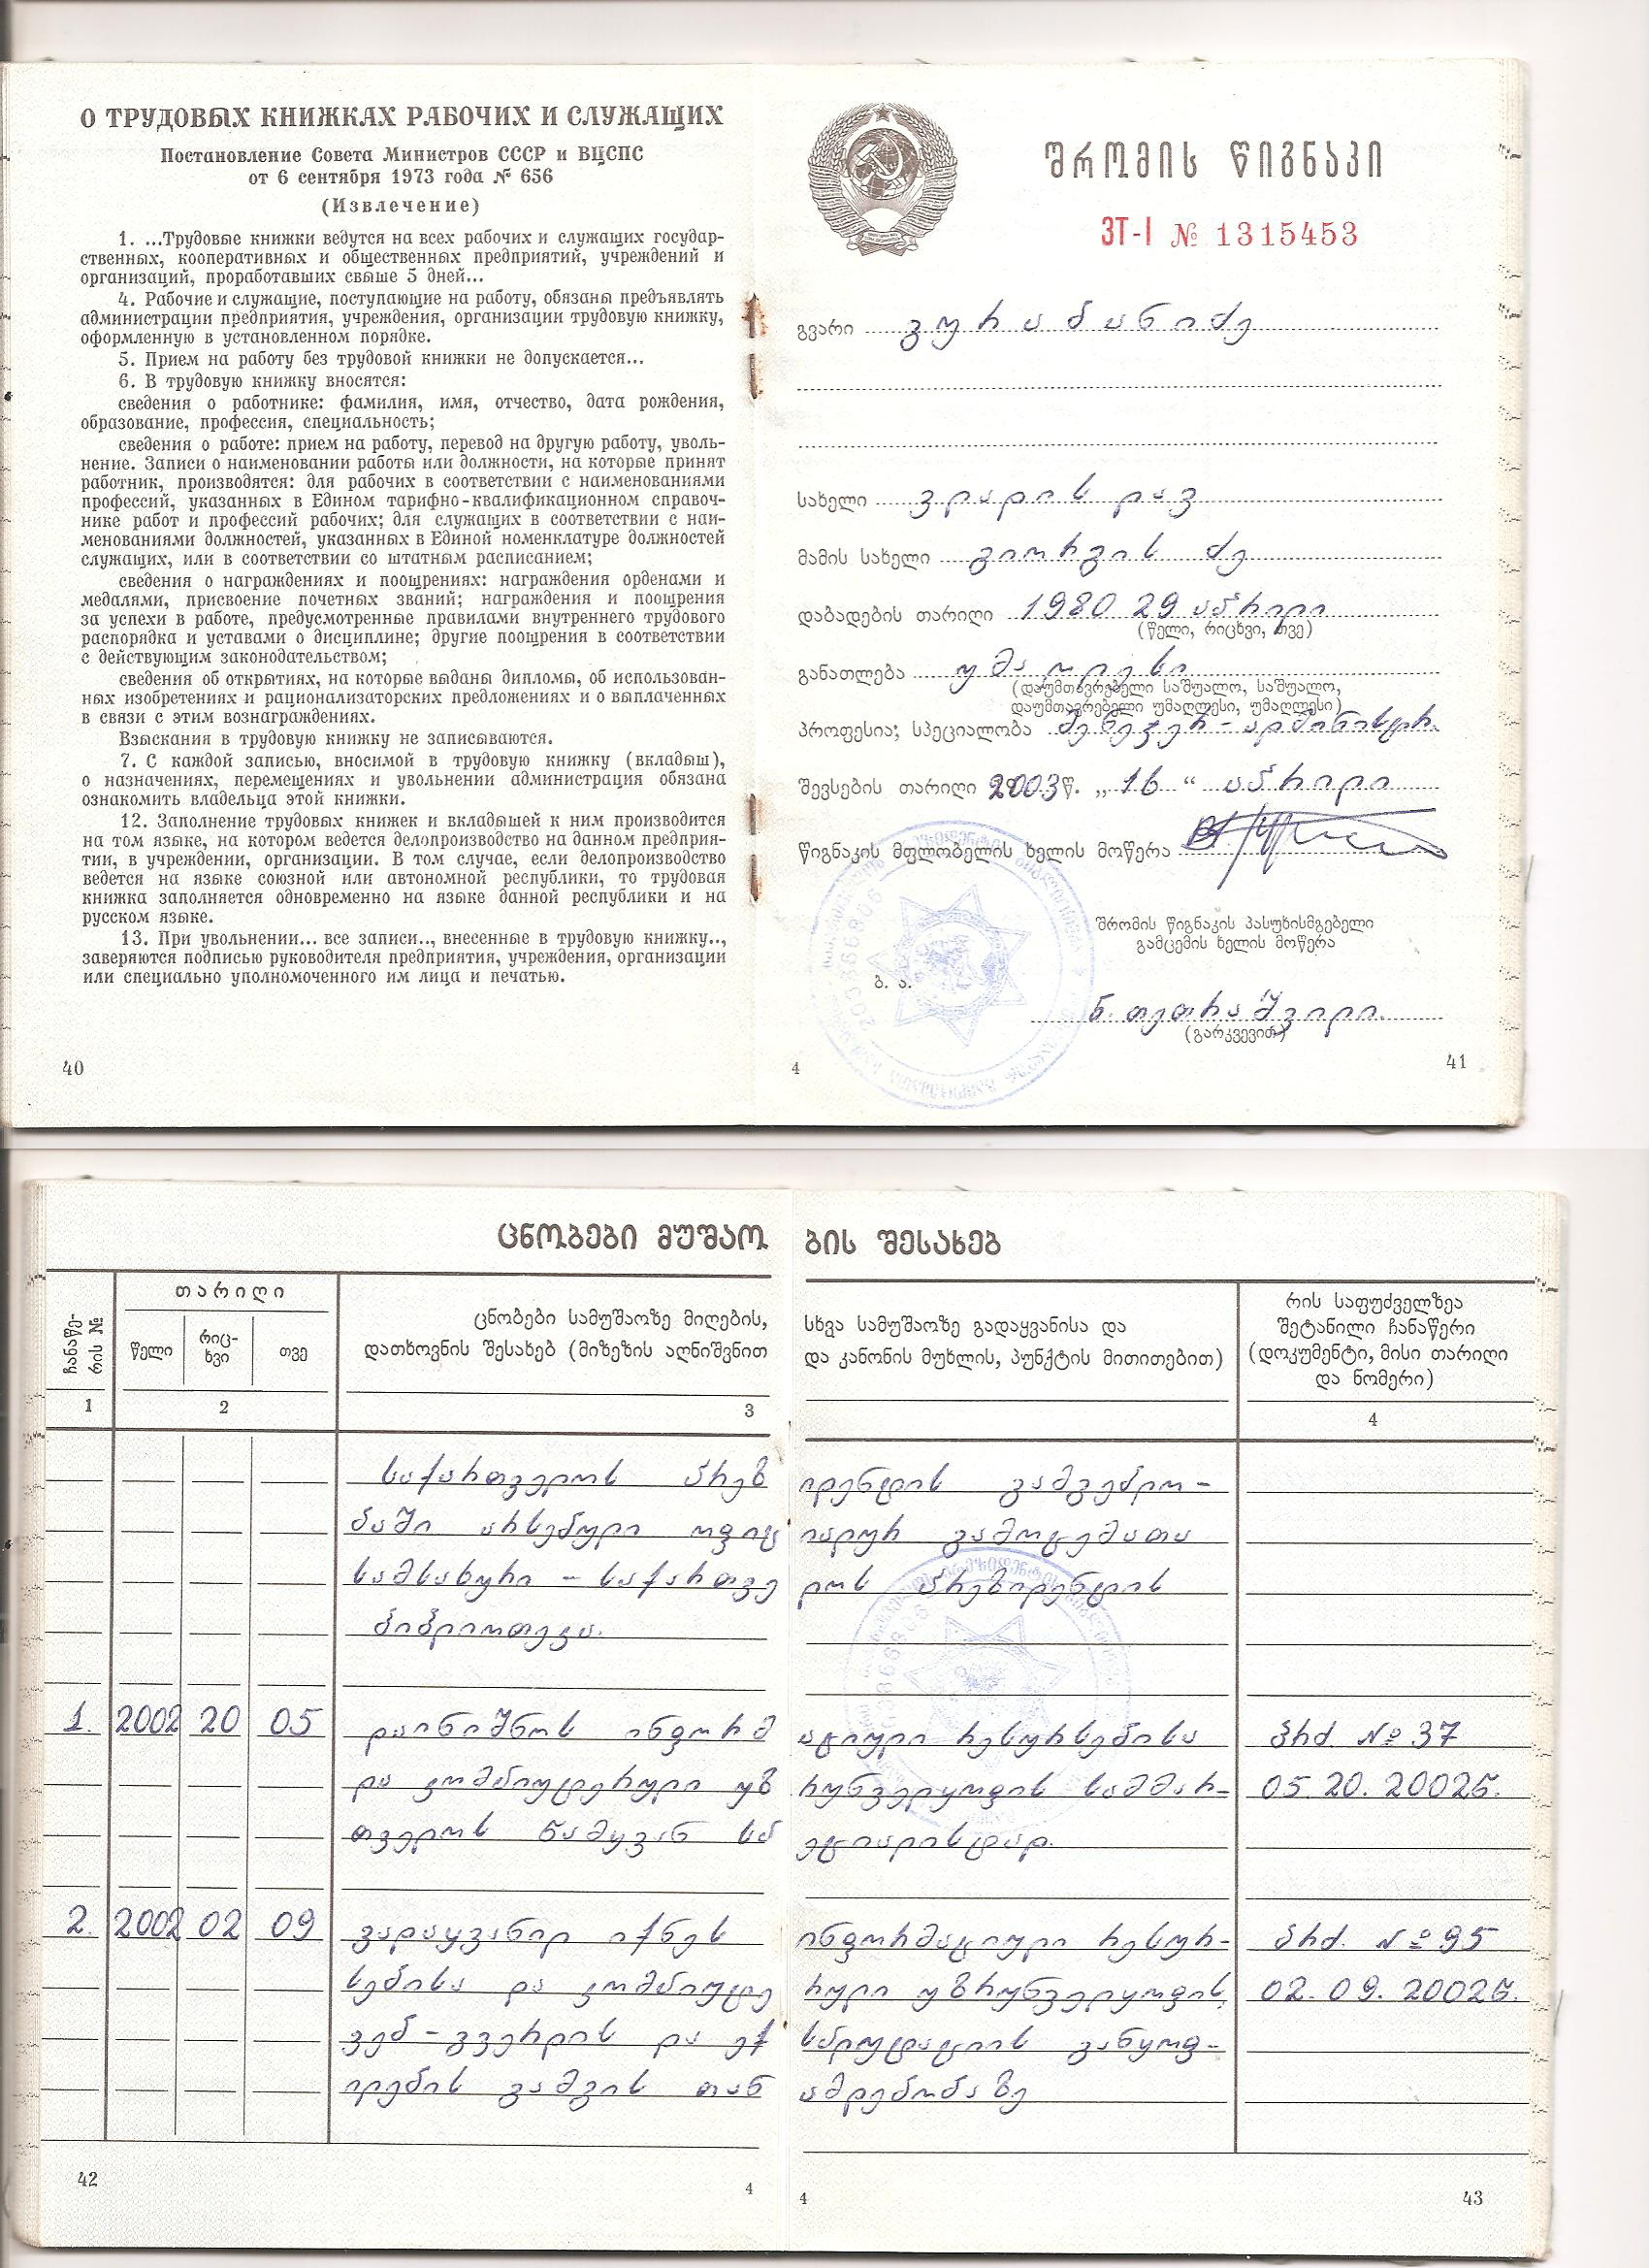 О ТРУДОВЫХ КНИЖКАХ РАБОЧИХ И СЛУЖАЩИХ
Постановление Совета Министров СССР и ВЦСПС
от 6 сентября 1973 года № 656
(Извлечение)
1. ...Трудовые книжки ведутся на всех рабочих и служащих государ-
ственных, кооперативных и общественных предприятий, учреждений и
организаций, проработавших свыше 5 дней...
4. Рабочие и служащие, поступающие на работу, обязаны предъявлять
администрации предприятия, учреждения, организации трудовую книжку,
оформленную в установленном порядке.
5. Прием на работу без трудовой книжки не допускается...
6. В трудовую книжку вносятся:
сведения о работнике: фамилия, имя, отчество, дата рождения,
образование, профессия, специальность;
сведения о работе: прием на работу, перевод на другую работу, уволь-
нение. Записи о наименовании работы или должности, на которые принят
работник, производятся: для рабочих в соответствии с наименованиями
профессий, указанных в Едином тарифно-квалификационном справоч-
нике работ и профессий рабочих; для служащих в соответствии с наи-
менованиями должностей, указанных в Единой номенклатуре должностей
служащих, или в соответствии со штатным расписанием;
сведения о награждениях и поощрениях: награждения орденами и
медалями, присвоение почетных званий; награждения и поощрения
за успехи в работе, предусмотренные правилами внутреннего трудового
распорядка и уставами о дисциплине; другие поощрения в соответствии
с действующим законодательством;
сведения об открытиях, на которые выданы дипломы, об использован-
ных изобретениях и рационализаторских предложениях и о выплаченных
в связи с этим вознаграждениях.
Взыскания в трудовую книжку не записываются.
7. С каждой записью, вносимой в трудовую книжку (вкладыш),
о назначениях, перемещениях и увольнении администрация обязана
ознакомить владельца этой книжки.
12. Заполнение трудовых книжек и вкладышей к ним производится
на том языке, на котором ведется делопроизводство на данном предприя-
тии, в учреждении, организации. В том случае, если делопроизводство
ведется на языке союзной или автономной республики, то трудовая
книжка заполняется одновременно на языке данной республики и на
русском языке.
13. При увольнении... все записи.., внесенные в трудовую книжку..,
заверяются подписью руководителя предприятия, учреждения, организации
или специально уполномоченного им лица и печатью.
40
შრომის წიგნაკი
ЗТ-I № 1315453
გვარი გურაბანიძე
სახელი ვლადისლავ
მამის სახელი გიორგის ძე
დაბადების თარიღი 1980 29 აპრილი
(წელი, რიცხვი, თვე)
განათლება უმაღლესი
(დაუმთავრებელი საშუალო, საშუალო,
დაუმთავრებელი უმაღლესი, უმაღლესი)
პროფესია; სპეციალობა მენეჯერ-ადმინისტრ.
შევსების თარიღი 2003წ. „16“ აპრილი
წიგნაკის მფლობელის ხელის მოწერა
შრომის წიგნაკის პასუხისმგებელი
გამცემის ხელის მოწერა
ბ. ა.
ნ. თეთრაშვილი.
(გარკვევით)
4
41
ცნობები მუშაო ბის შესახებ
ჩანაწე-
რის №
თარიღი
წელი
რიც-
ხვი
თვე
ცნობები სამუშაოზე მიღების, სხვა სამუშაოზე გადაყვანისა და
დათხოვნის შესახებ (მიზეზის აღნიშვნით და კანონის მუხლის, პუნქტის მითითებით)
რის საფუძველზეა
შეტანილი ჩანაწერი
(დოკუმენტი, მისი თარიღი
და ნომერი)
1 2 3 4
საქართველოს პრეზ იდენტის გამგებლო-
ბაში არსებული ოფიც იალურ გამოცემათა
სამსახური - საქართვე ლოს პრეზიდენტის
ბიბლიოთეკა.
1. 2002 20 05 დაინიშნოს ინფორმ აციული რესურსებისა ბრძ. № 37
და კომპიუტერული უზ რუნველყოფის სამმარ- 05. 20. 2002წ.
თველოს წამყვან სპ ეციალისტად.
2. 2002 02 09 გადაყვანილ იქნეს ინფორმაციული რესურ- ბრძ. № 95
სებისა და კომპიუტე რული უზრუნველყოფის, 02. 09. 2002წ.
ვებ-გვერდის და ექ სპლუატაციის განყოფ-
ილების გამგის თან ამდებობაზე
42
4
4
43